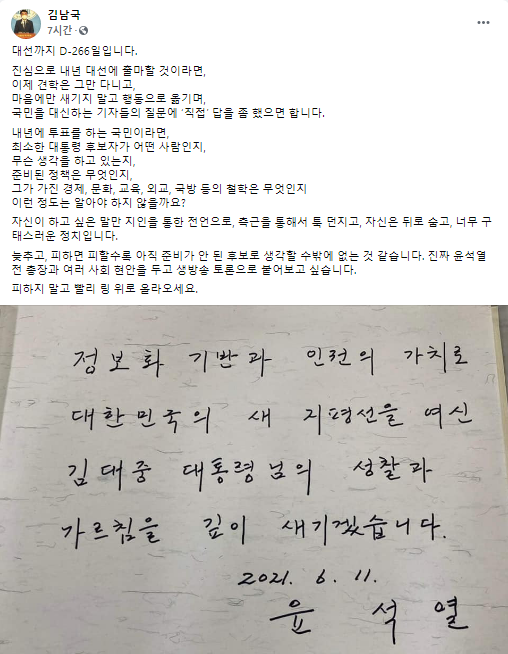 김남국
7시간 ·
대선까지 D-266일입니다.
진심으로 내년 대선에 출마할 것이라면,
이제 견학은 그만 다니고,
마음에만 새기지 말고 행동으로 옮기며,
국민을 대신하는 기자들의 질문에 '직접' 답을 좀 했으면 합니다.
내년에 투표를 하는 국민이라면,
최소한 대통령 후보자가 어떤 사람인지,
무슨 생각을 하고 있는지,
준비된 정책은 무엇인지,
그가 가진 경제, 문화, 교육, 외교, 국방 등의 철학은 무엇인지
이런 정도는 알아야 하지 않을까요?
자신이 하고 싶은 말만 지인을 통한 전언으로, 측근을 통해서 툭 던지고, 자신은 뒤로 숨고, 너무 구
태스러운 정치입니다.
늦추고, 피하면 피할수록 아직 준비가 안 된 후보로 생각할 수밖에 없는 것 같습니다. 진짜 윤석열
전 총장과 여러 사회 현안을 두고 생방송 토론으로 붙어보고 싶습니다.
피하지 말고 빨리 링 위로 올라오세요.
정보화 기반과 인권의 가치로
대한민국의 새 지평선을 여신
김대중 대통령님의 성찰과
가르침을 깊이 새기겠습니다.
2021. 6. 11.
윤 석 열